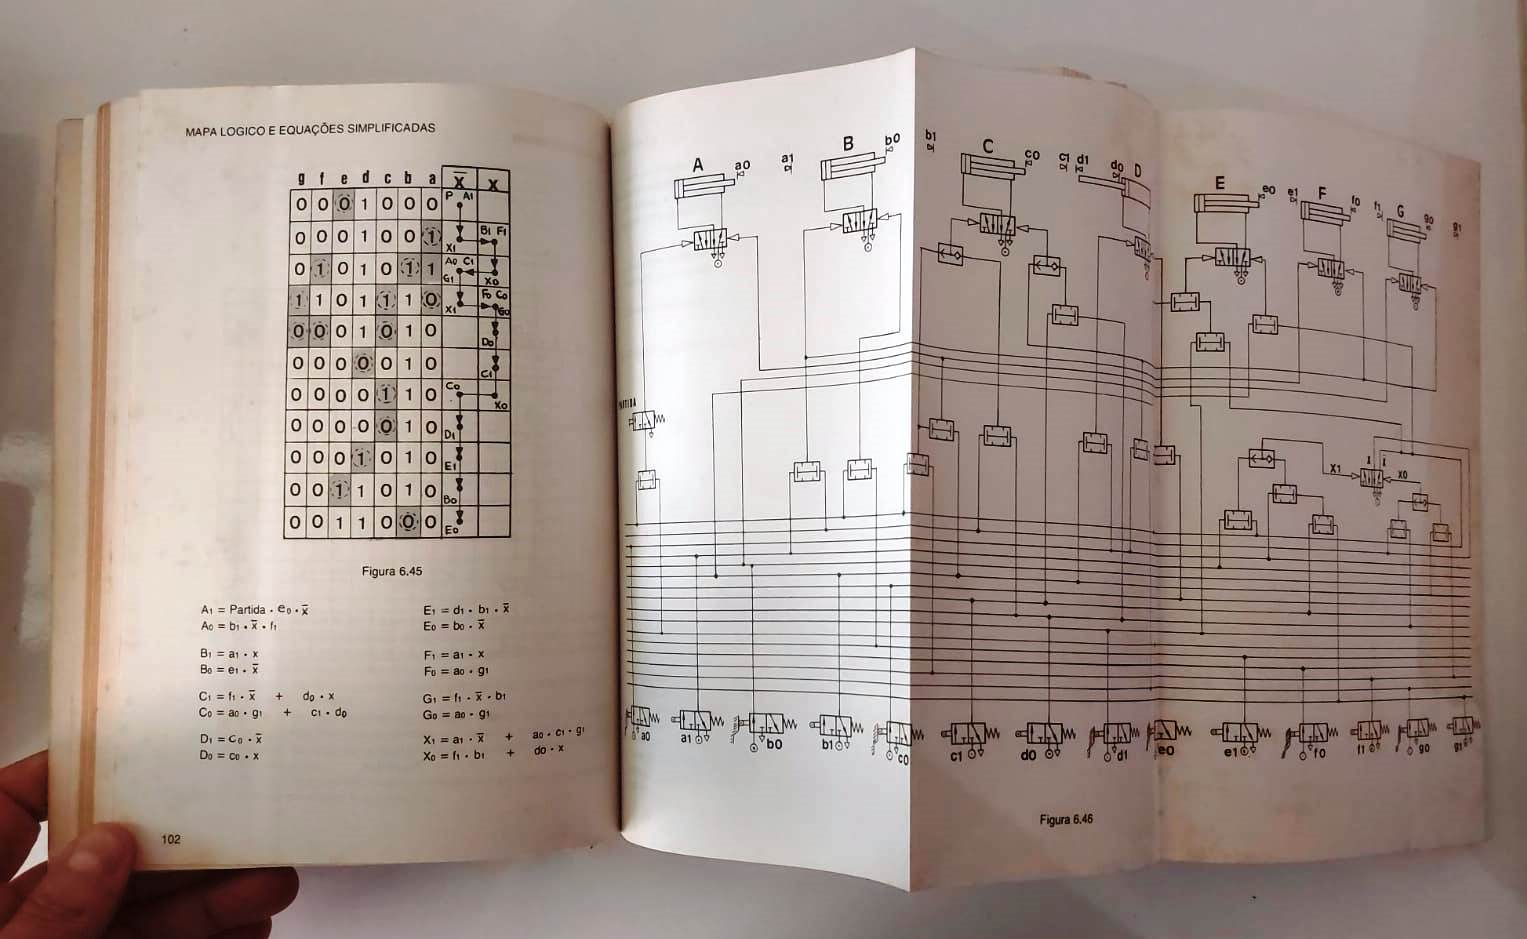 MAPA LOGICO E EQUAÇÕES SIMPLIFICADAS
g f e d c b a x̄ x
0 0 0 1 0 0 0 P A1
0 0 0 1 0 0 1 X1 B1 F1
0 1 0 1 0 1 1 A0 C1 G1 X0
1 1 0 1 1 1 0 X1 F0 C0 G0
0 0 0 1 0 1 0 D0
0 0 0 0 0 1 0 C1
0 0 0 0 1 1 0 C0 X0
0 0 0 0 0 1 0 D1
0 0 0 1 0 1 0 E1
0 0 1 1 0 1 0 B0
0 0 1 1 0 0 0 E0
Figura 6.45
A1 = Partida · e0 · x̄
A0 = b1 · x̄ · f1
B1 = a1 · x
B0 = e1 · x̄
C1 = f1 · x̄ + d0 · x
C0 = a0 · g1 + c1 · d0
D1 = C0 · x̄
D0 = c0 · x
E1 = d1 · b1 · x̄
E0 = b0 · x̄
F1 = a1 · x
F0 = a0 · g1
G1 = f1 · x̄ · b1
G0 = a0 · g1
X1 = a1 · x̄ + a0 · c1 · g1
X0 = f1 · b1 + d0 · x
102
A a0 a1 B b0 b1 C c0 c1 d1 d0 D E e0 e1 F f0 f1 G g0 g1
X1 X0
a0 a1 b0 b1 c0 c1 d0 d1 e0 e1 f0 f1 g0 g1
Figura 6.46